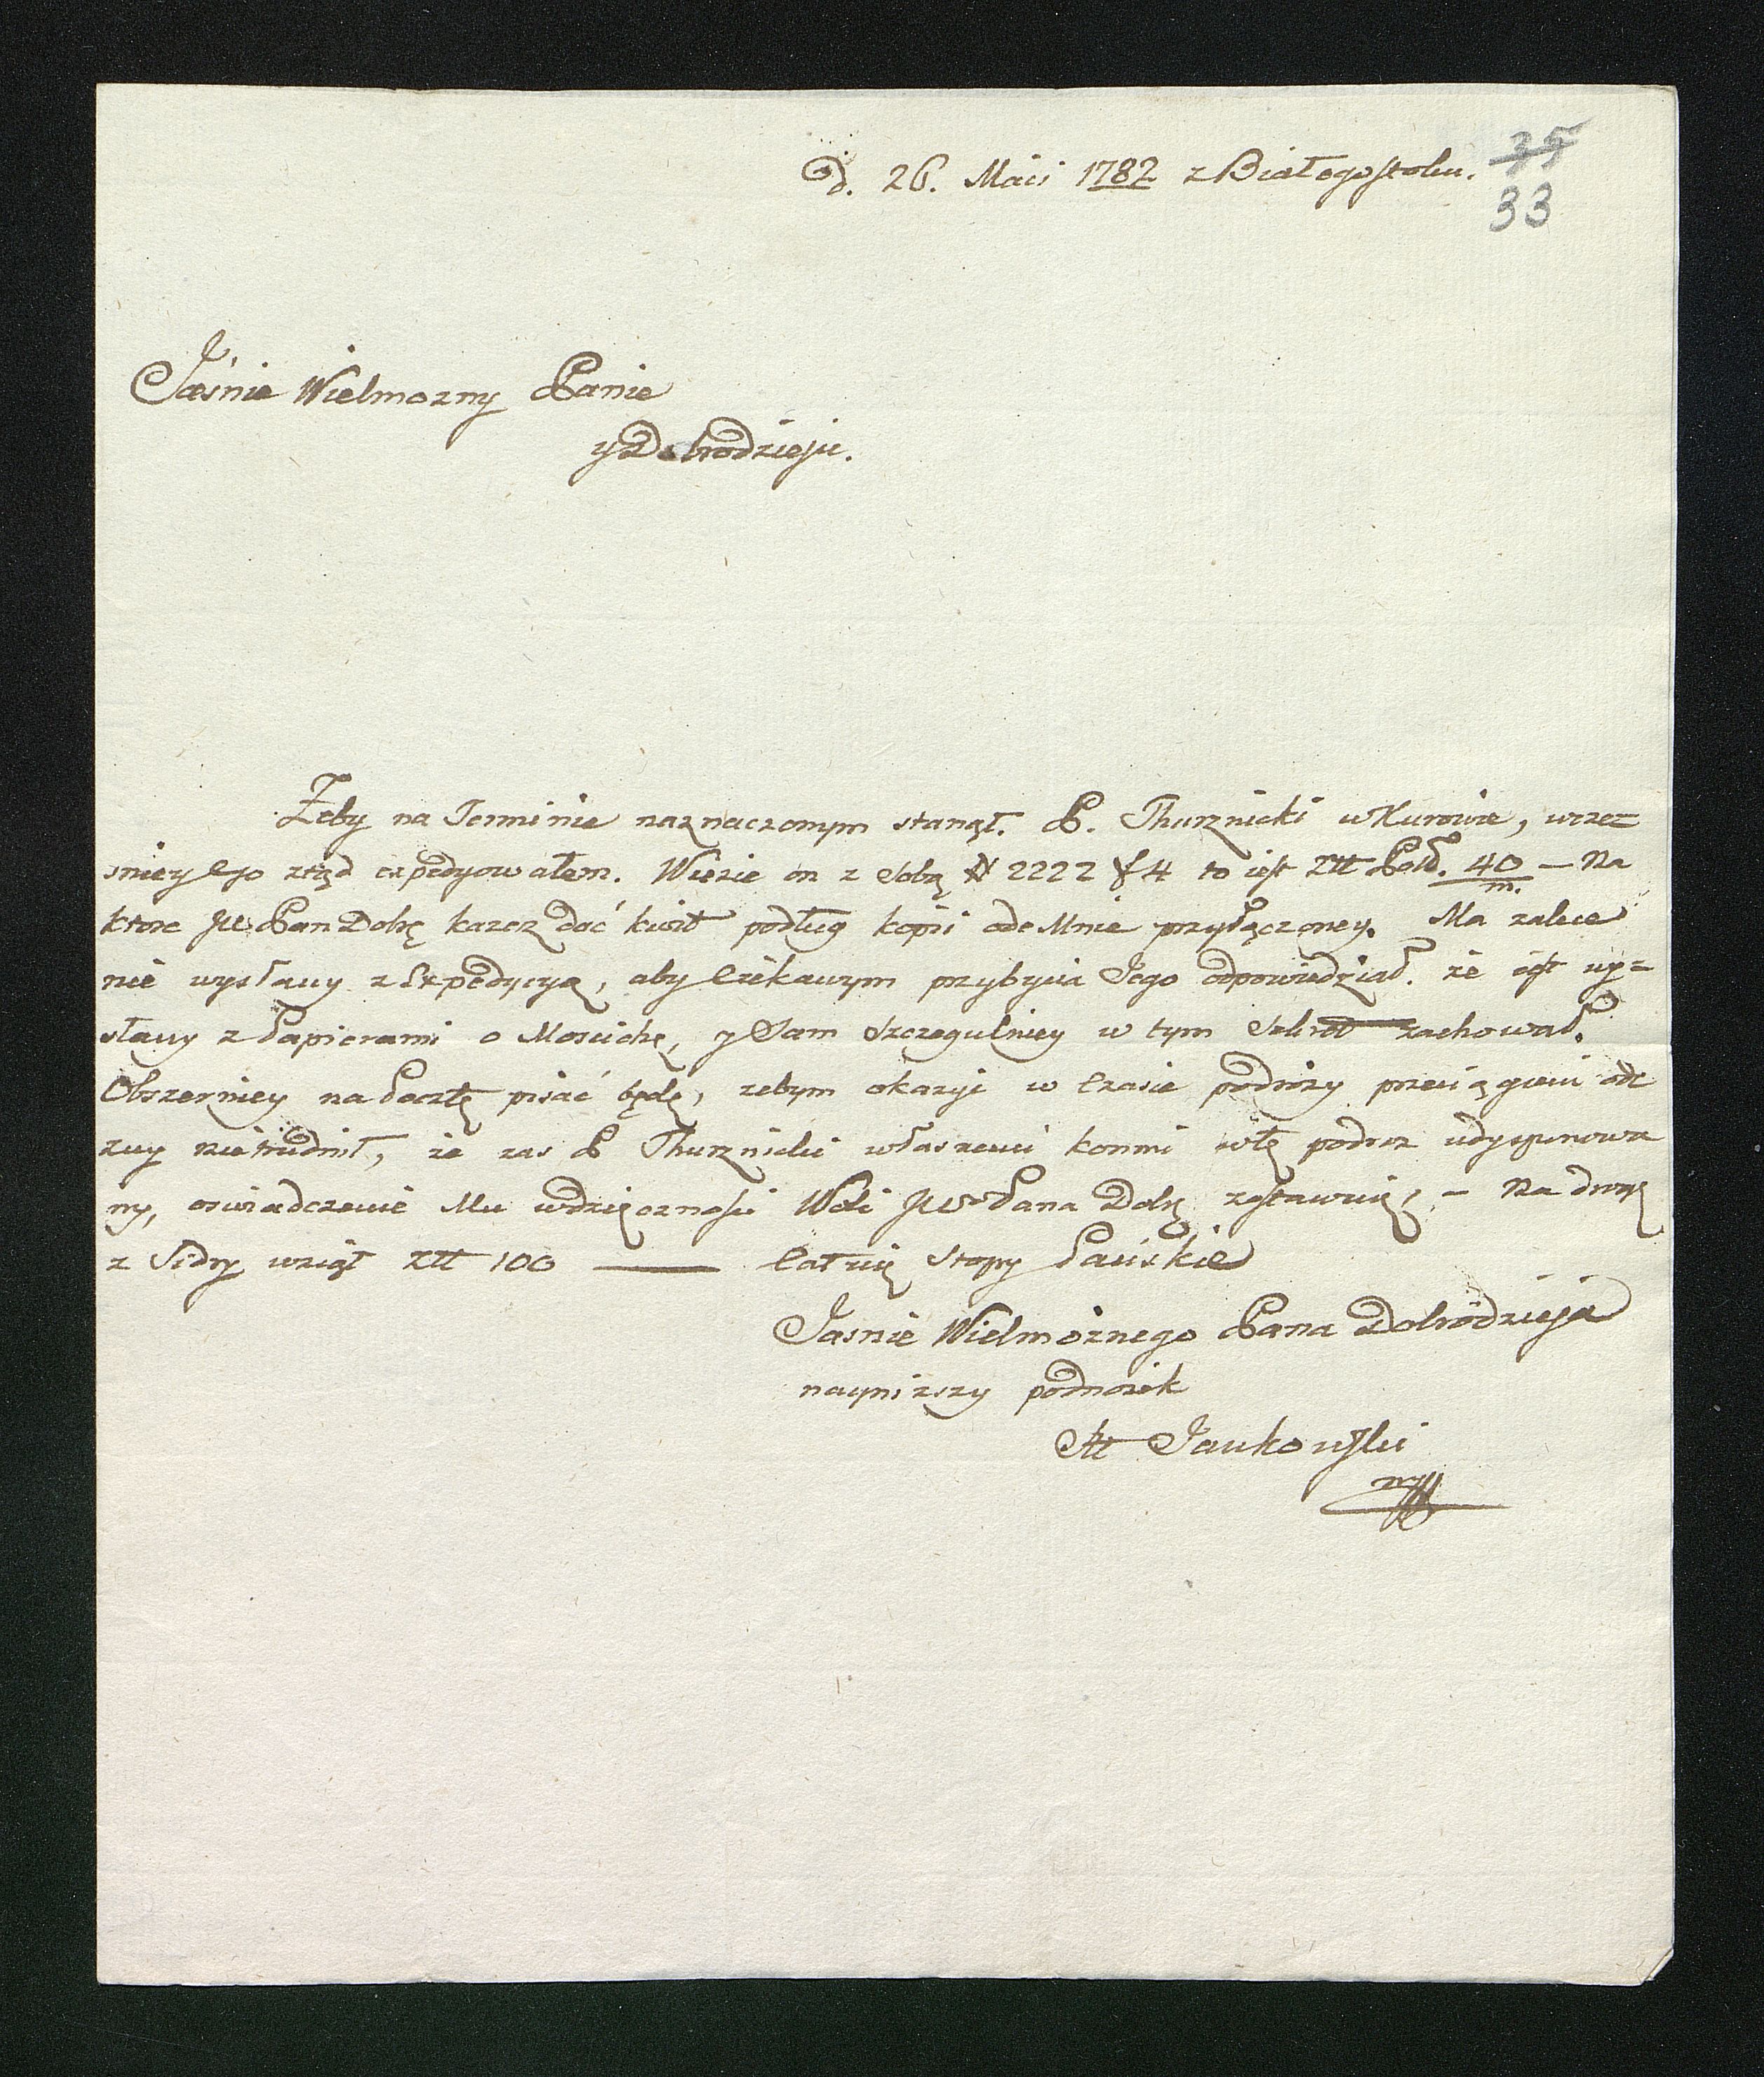 d. 26. Maii 1782 z Białegostoku.
35
33
Jaśnie Wielmożny Panie
y Dobrodzieju.
Żeby na Terminie naznaczonym stanął P. Thurznicki w Kurowie, wcze=
sniey Ego ztąd expedyowałem. Wiezie on z sobą # 2222 f 4 to iest Ztt Pols. 40/m. — Na
ktore JW Pan Dobr. każesz dać kwit podług kopii odemnie przyłączoney. Ma zalece
nie wysłany z Expedycyą, aby Ciekawym przybycia Jego odpowiedział że iest wy=
słany z Papierami o Mościchę, y Sam szczegulniey w tym Sekret zachował.
Obszerniey na Pocztę pisać będę, żebym okazyi w Czasie podroży przeciągiem
nie trudnił, że zas P Thurznicki własnemi konmi w tę podroż udysponowa
ny, oswiadczenie Mu wdzięcznosci Woli JW Pana Dobr. zostawuię, — Na drogę
z Sidry wziął Ztt 100 — Całuię Stopy Pańskie
Jasnie Wielmożnego Pana Dobrodzieja
nayniższy podnożek
St Jankowski
mp